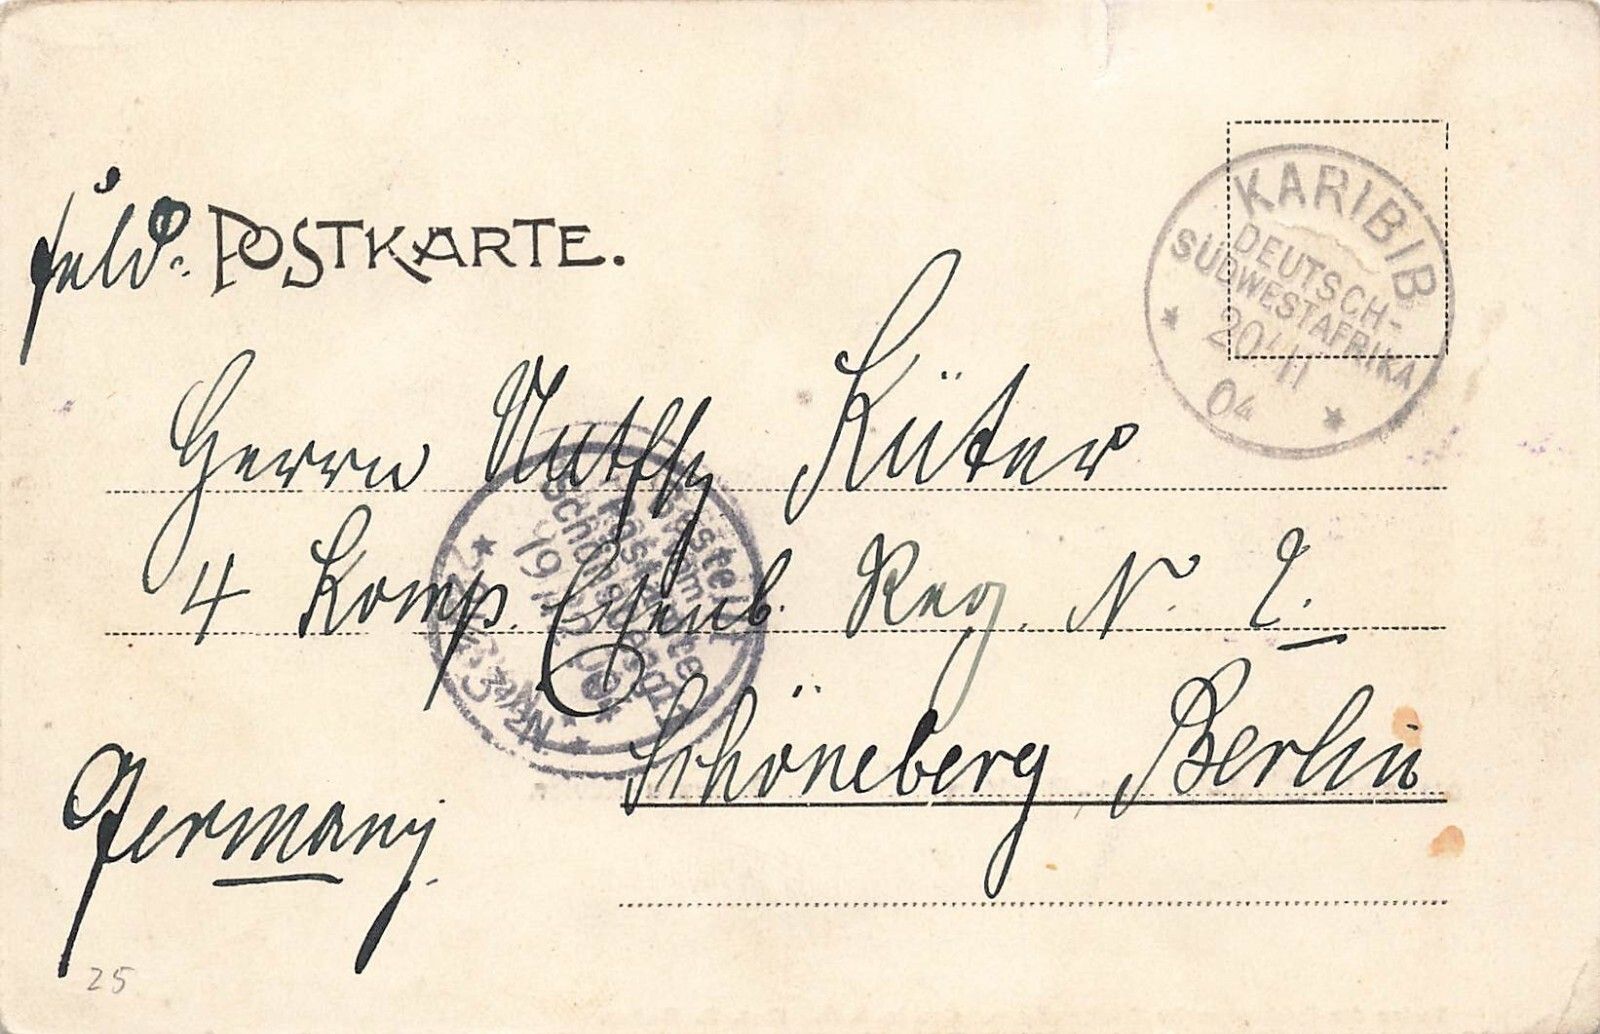 Feld- POSTKARTE.
KARIBIB
DEUTSCH-
SÜDWESTAFRIKA
20/11
04
Herrn Küter
4 Komp. Eisenb. Reg. N. 2.
Bestellt
vom
Postamte
Schöneberg
19
Schöneberg Berlin
Germany.
25